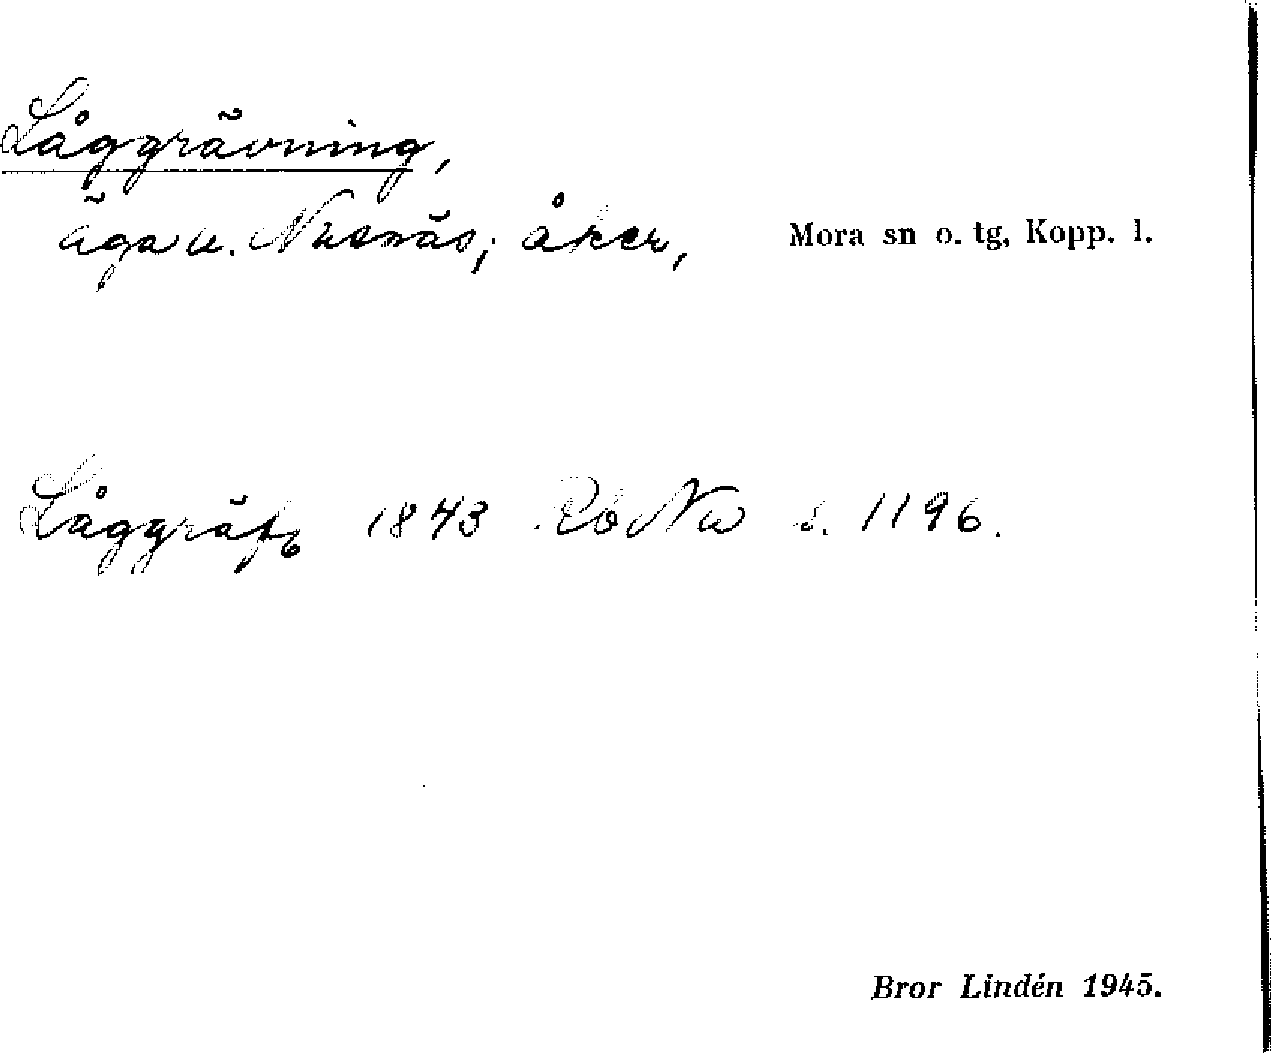 Låggrävning,
äga u. Nusnäs; åker, Mora sn o. tg, Kopp. l.
Låggräfg 1843 Rb Nu s. 1196.
Bror Lindén 1945.